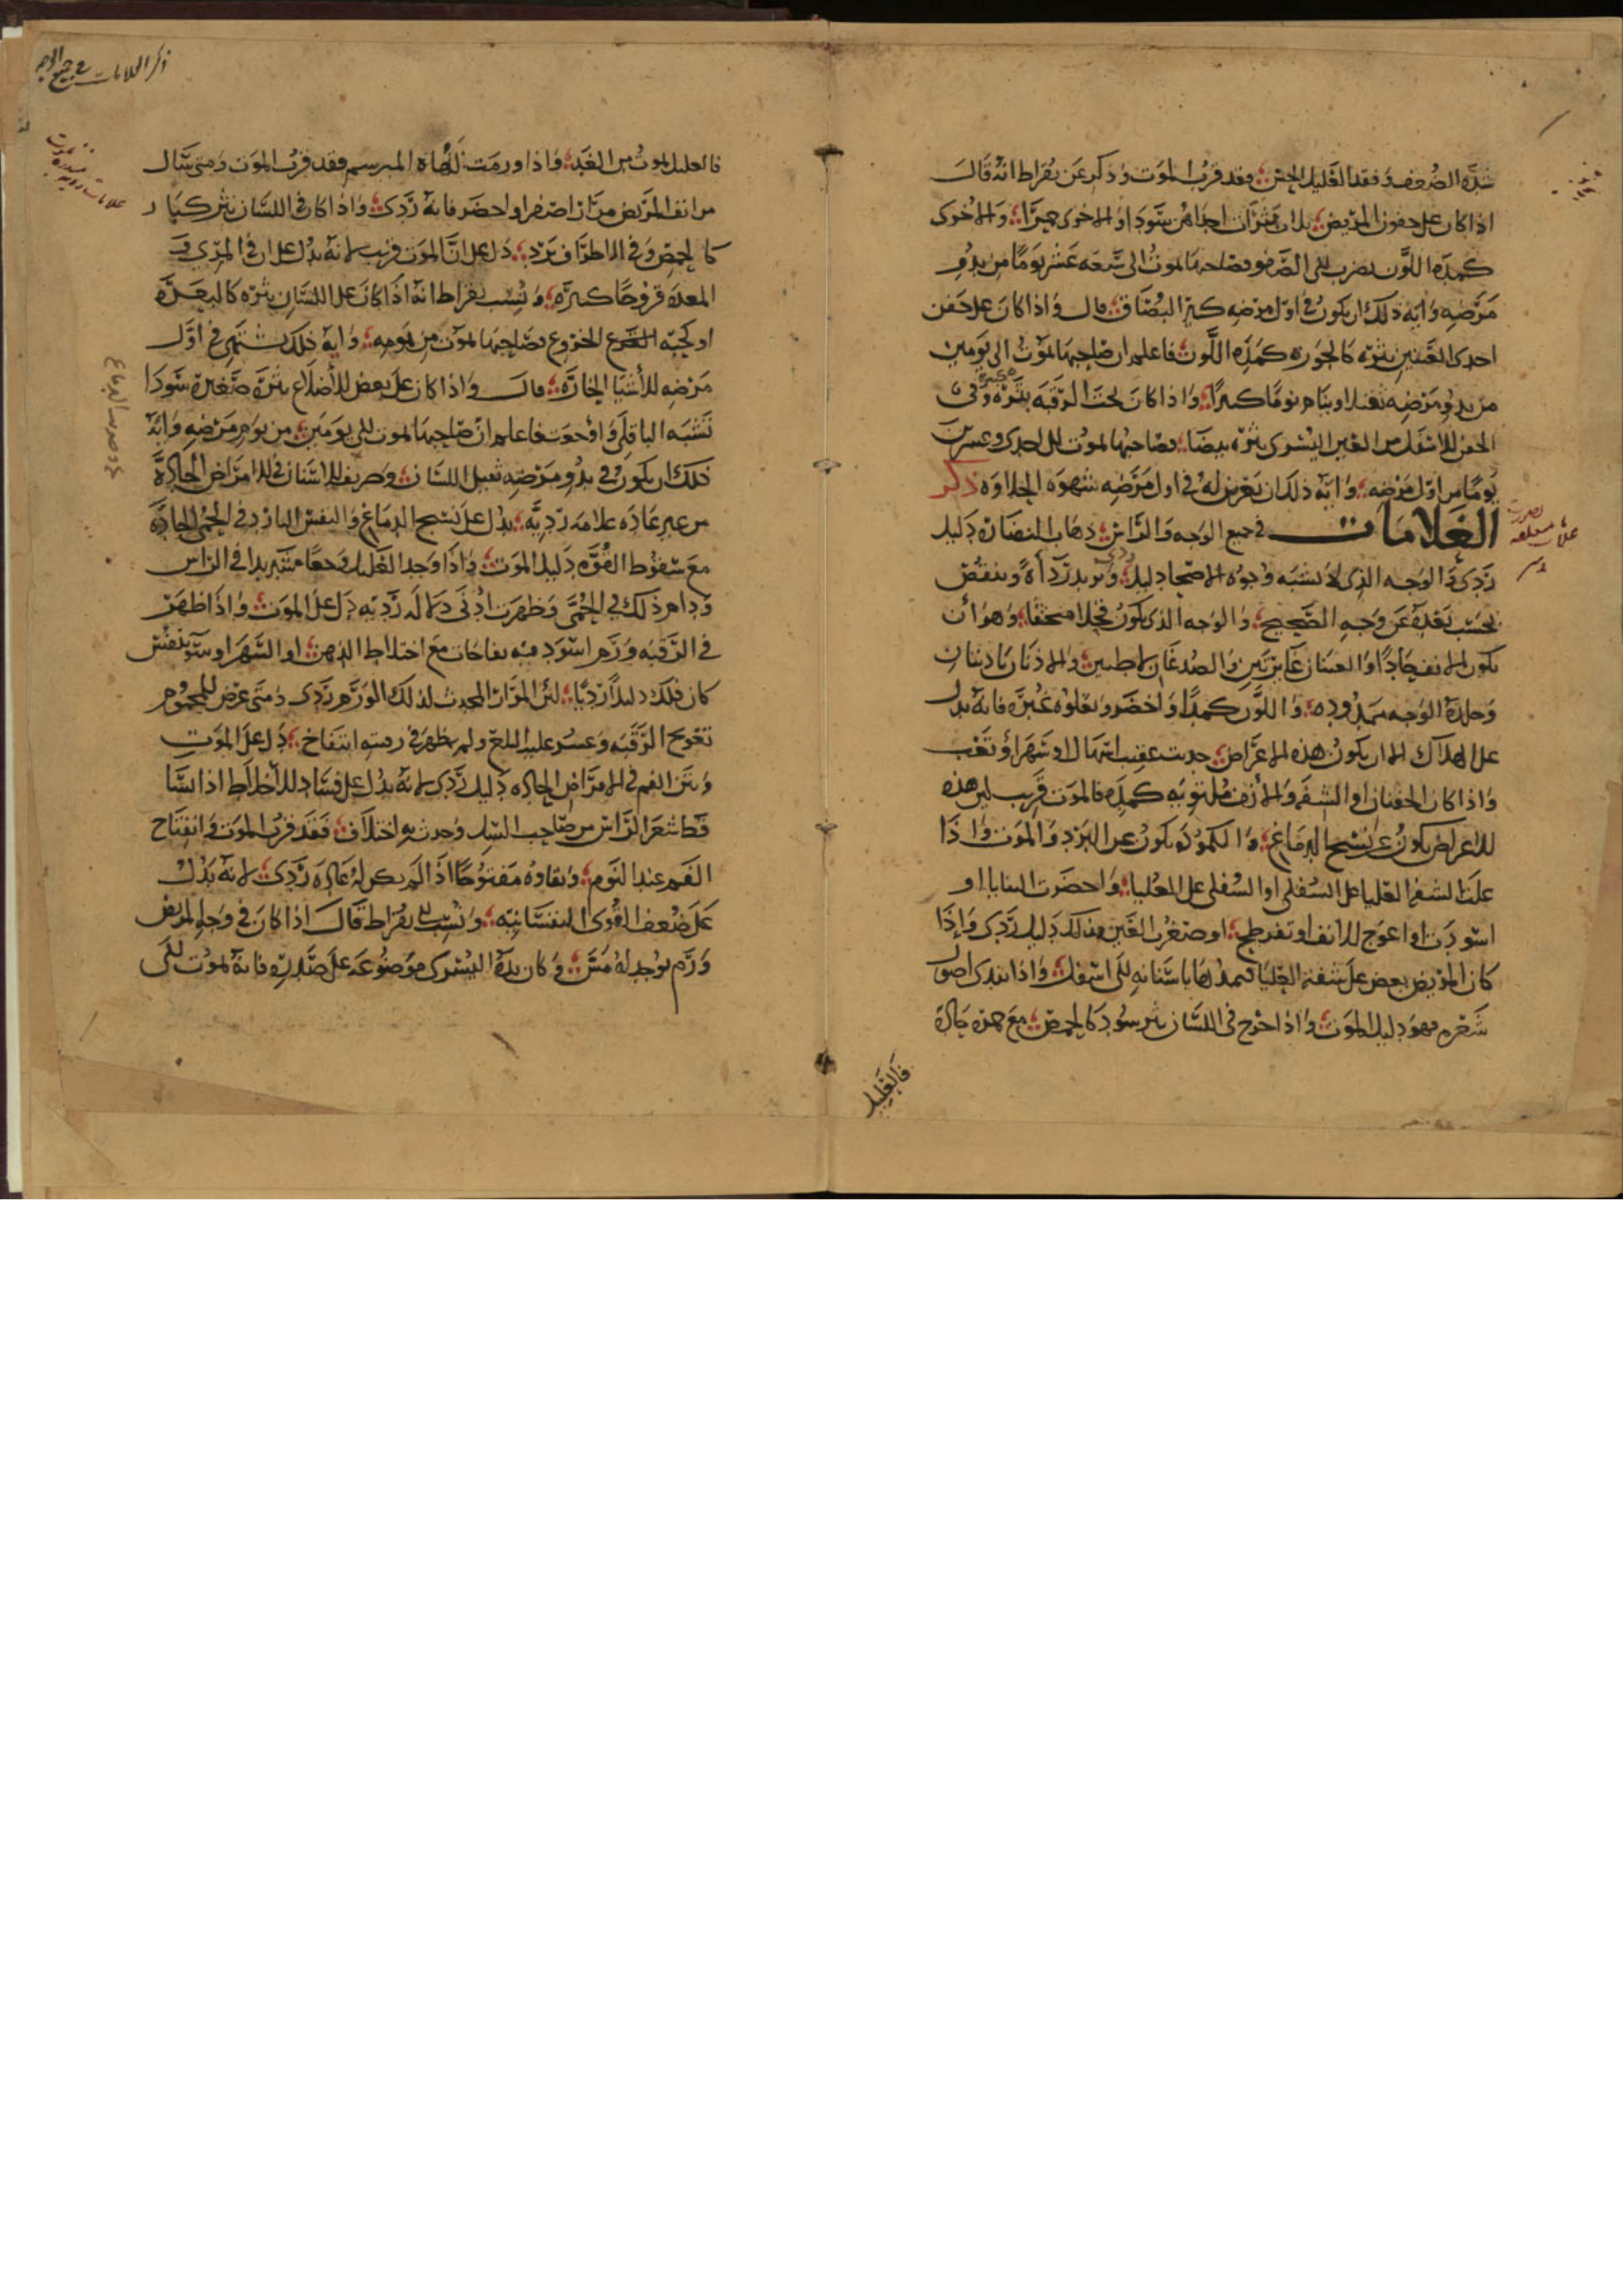 شدة الضعف وفقد العليل الحس فقد قرب الموت وذكر عن بقراط انه قال
اذا كان على جفون المريض ثلاث بثرات احداهن سودا والاخرى حمرا والاخرى
كمدة اللون تضرب الى الصفره فصاحبها يموت الى تسعه عشر يوما من بدو
مرضه واية ذلك ان يكون في اول مرضه كثير البصاق قال واذا كان على جفن
احدى العينين بثره كالجوزه كمده اللون فاعلم ان صاحبها يموت الى يومين
من بدو مرضه ثقلا وينام نوما كثيرا واذا كان تحت الرقبه بثره وفي
الجفن الاسفل من العين اليسرى بثره بيضا فصاحبها يموت الى احدى وعشرين
يوما من اول مرضه واية ذلك ان يعرض له في اول مرضه شهوه الحلاوه ذكر
العلامات في جميع الوجه والراس ذهاب النضارة دليل
ردى والوجه الذى لا يشبه وجوه الاصحا دليل ردى ويزيد رداة وينقص
بحسب بعده عن وجه الصحيح والوجه الذى يكون قحلا وهو أن
يكون الانف حادا والعينان غايرتين والصدغان لاطيين والاذنان باردتان
وجلدة الوجه ممدوده واللون كمدا واخضر وتعلوه غبرة فانه يدل
على الهلاك الا ان يكون هذه الاعراض حدثت عقيب اسهال او سهر او تعب
واذا كان الجفنان او الشفه والانف ملتويه كمدة فالموت قريب لان هذه
الاعراض يكون عن تشنج الدماغ والكموده يكون عن البرد والموت واذا
علت الشفه العليا على السفلى او السفلى على العليا واخضرت الثنايا او
اسودت او اعوج الانف او تفرطح او صغرت العين فذلك دليل ردى وإذا
كان المريض يعض على شفته العليا فيمدها باسنانه الى اسفل واذا ندى اصول
شعره فهو دليل الموت واذا خرج في اللسان بثر سود كالحمص مع حمى حادة
فالعليل
ذكر العلامات في جميع الوجه
فالعليل يموت من الغد واذا ورمت لهاة المبرسم فقد قرب الموت ومتى سال
من انف المريض مرار اصفر او اخضر فانه ردى واذا كان في اللسان بثر كبار
كالحمص وفي الاطراف برد دل على ان الموت قريب لانه يدل على ان في المرى و
المعدة قروحا كثيرة ونسب بقراط انه اذا كان على اللسان بثره كالبعره
او كحبه الخروع فصاحبها يموت من يومه واية ذلك يشتهى في اول
مرضه الأشيا الحارة قال واذا كان على بعض الأضلاع بثرة صغيرة سودا
تشبه الباقلى واوجعت فاعلم ان صاحبها يموت الى يومين من يوم مرضه واية
ذلك ان يكون في بدو مرضه ثقيل اللسان وصريف الاسنان في الامراض الحادة
من غير عاده علامه رديه يدل على تشنج الدماغ والنفس البارد في الحمى الحادة
مع سقوط القوه دليل الموت واذا وجد العليل وجعا شديدا في الراس
ودام ذلك في الحمى وظهرت ادنى دلاله رديه دل على الموت واذا ظهر
في الرقبه ورم اسود فيه نفاخات مع اختلاط الذهن او السهر او سو تنفس
كان ذلك دليلا رديا لان المرار المحدث لذلك الورم ردى ومتى عرض للمحموم
تعويج الرقبه وعسر عليه البلع ولم يظهر في رقبته انتفاخ دل على الموت
ونتن الفم في الامراض الحاده دليل ردى لانه يدل على فساد الأخلاط اذا تسا
قط شعر الراس من صاحب السل وحدث به اختلاف فقد قرب الموت وانفتاح
الفم عند النوم وبقاوه مفتوحا اذا لم يكن له عادة ردى لانه يدل
على ضعف القوى النفسانيه ونسب الى بقراط قال اذا كان في وجه المريض
ورم لا يوجد له مس وكان يده اليسرى موضوعة على صدره فانه يموت الى